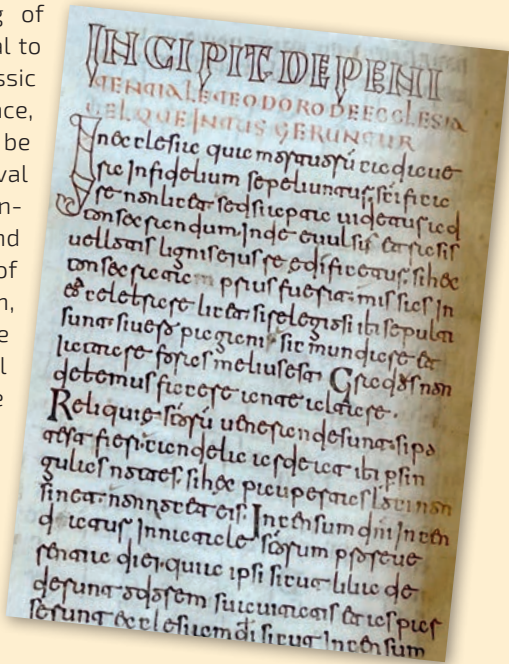 g of
al to
ssic
nce,
be
val
n-
nd
of
n,
e
l
e
INCIPIT DE PENI
TENTIALE TEODORO DE ECCLESIA
UEL QUE INTUS GERUNTUR
In ecclesia qua mortuorū cadaue
ra infidelium sepeliuntur scificare
non licet sed si apta uidetur ad
consecrandum inde euulsa et rasis
uel lotis lignis eius re edificetur. si hec
consecrata prius fuerat missas in
ea celebrare licet si relegiosi ibi sepulti
sunt si uero pagani sic mundare et
iactare foras melius est Grados non
debemus facere ante altare.
Reliquie scorū uenerande sunt si po
test fieri candela ardeat ibi p sin
gulas noctes. si hec paupertas loci non
sinet. non nocet eis. Incensum dni incen
datur In natale scorum pro reue
rentia diei. quia ipsi sicut lilia de
derunt odorem suauitatis et asper
serunt ecclesiam di sicut Incensum